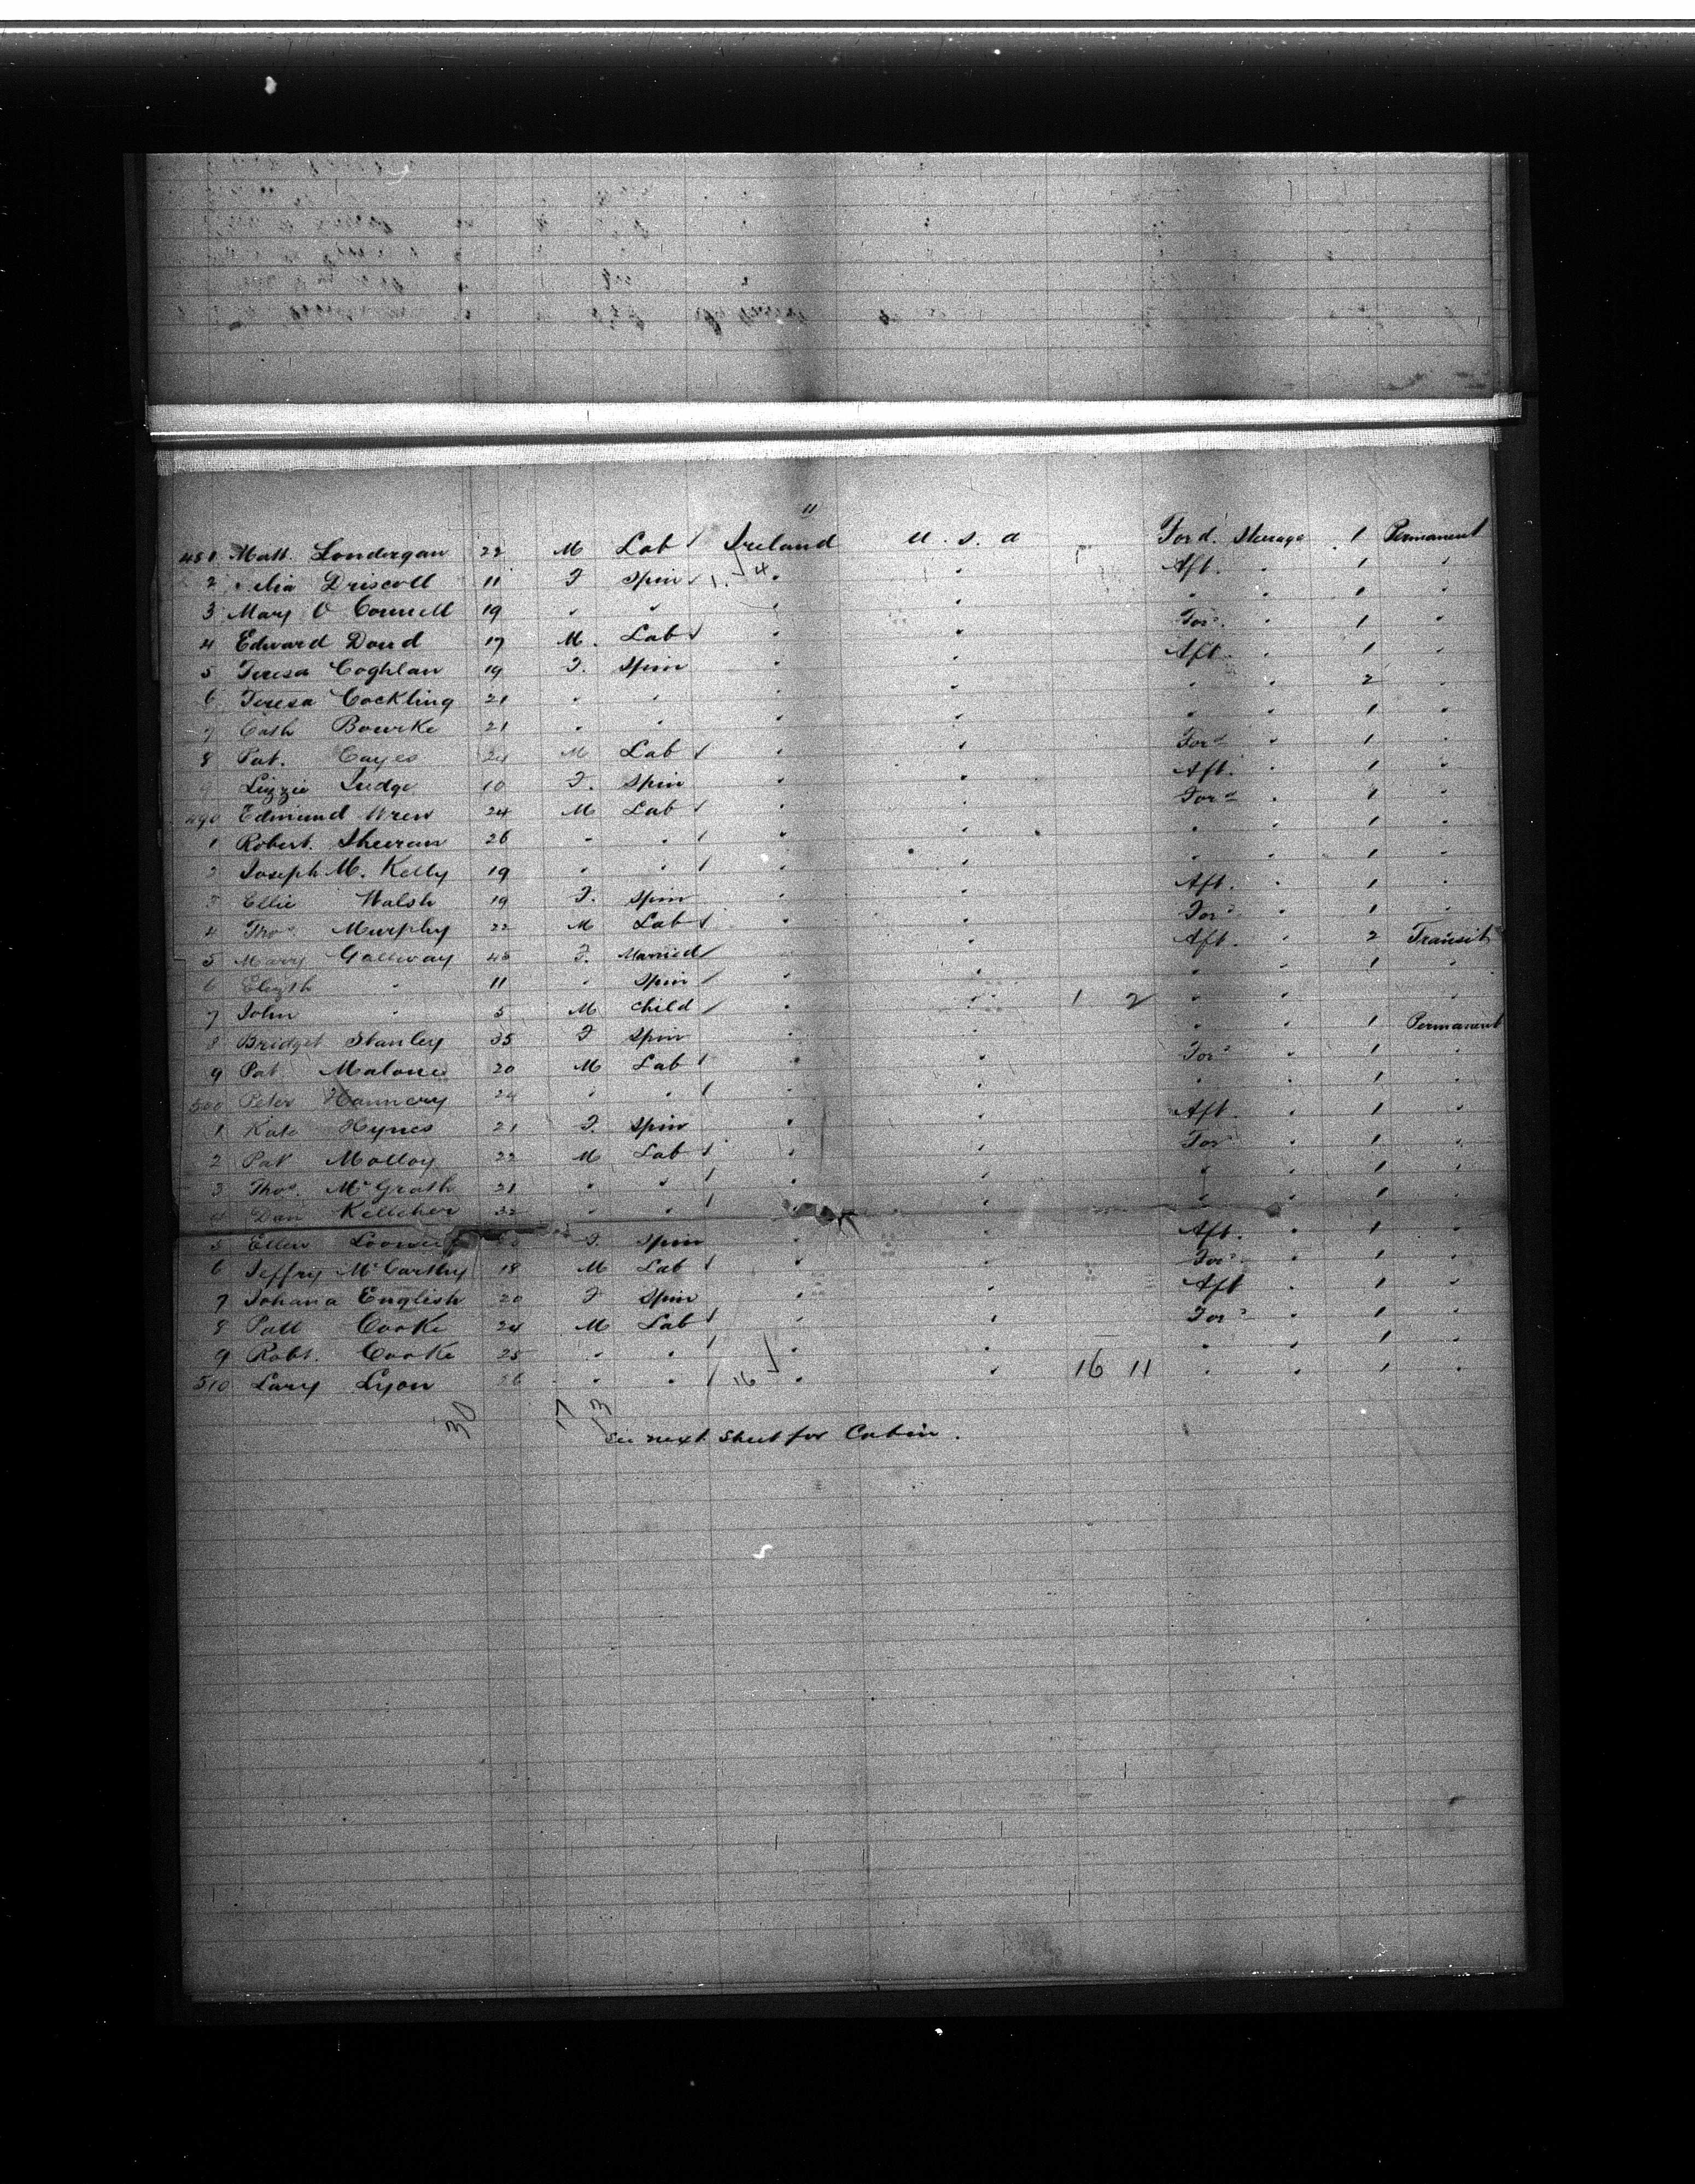 11
481 Matt. Londergan 22 M Lab Ireland U. S. A Ford. Steerage 1 Permanent
2 Delia Driscoll 11 F Spin 1. 4 " " Aft. " 1 "
3 Mary O Connell 19 " " " " " " 1 "
4 Edward Doud 17 M. Lab " " For. " 1 "
5 Teresa Coghlan 19 F. Spin " " Aft. " 1 "
6 Teresa Cockling 21 " " " " " " 2 "
7 Cath Bourke 21 " " " " " " 1 "
8 Pat. Cayes 24 M Lab " " Ford " 1 "
9 Lizzie Judge 10 F. Spin " " Aft. " 1 "
490 Edmund Wren 24 M Lab " " Ford " 1 "
1 Robert. Sheeran 26 " " " " " " 1 "
2 Joseph M. Kelly 19 " " " " " " 1 "
3 Ellie Walsh 19 F. Spin " " Aft. " 1 "
4 Thos. Murphy 22 M Lab " " Ford " 1 "
5 Mary Galloway 45 F. Married " " Aft. " 2 Transit
6 Elizth " 11 " Spin " " " " 1 "
7 John " 5 M Child " " 1 2 " " "
8 Bridget Stanley 35 F Spin " " " " 1 Permanent
9 Pat Malone 20 M Lab " " Ford " 1 "
500 Peter Hannery 24 " " " " " " 1 "
1 Kate Hynes 21 F. Spin " " Aft. " 1 "
2 Pat Molloy 22 M Lab " " Ford " 1 "
3 Thos. McGrath 21 " " " " " " 1 "
4 Dan Kelleher 22 " " " " " " 1 "
5 Ellen F. Spin " " Aft. " 1 "
6 Jeffry McCarthy 18 M Lab " " Ford " 1 "
7 Johana English 20 F Spin " " Aft " 1 "
8 Patt Cooke 24 M Lab " " Ford " 1 "
9 Robt. Cooke 25 " " " " " " 1 "
510 Lary Lyon 26 " " 16 " " 16 11 " " 1 "
30 17 13
See next Sheet for Cabin.